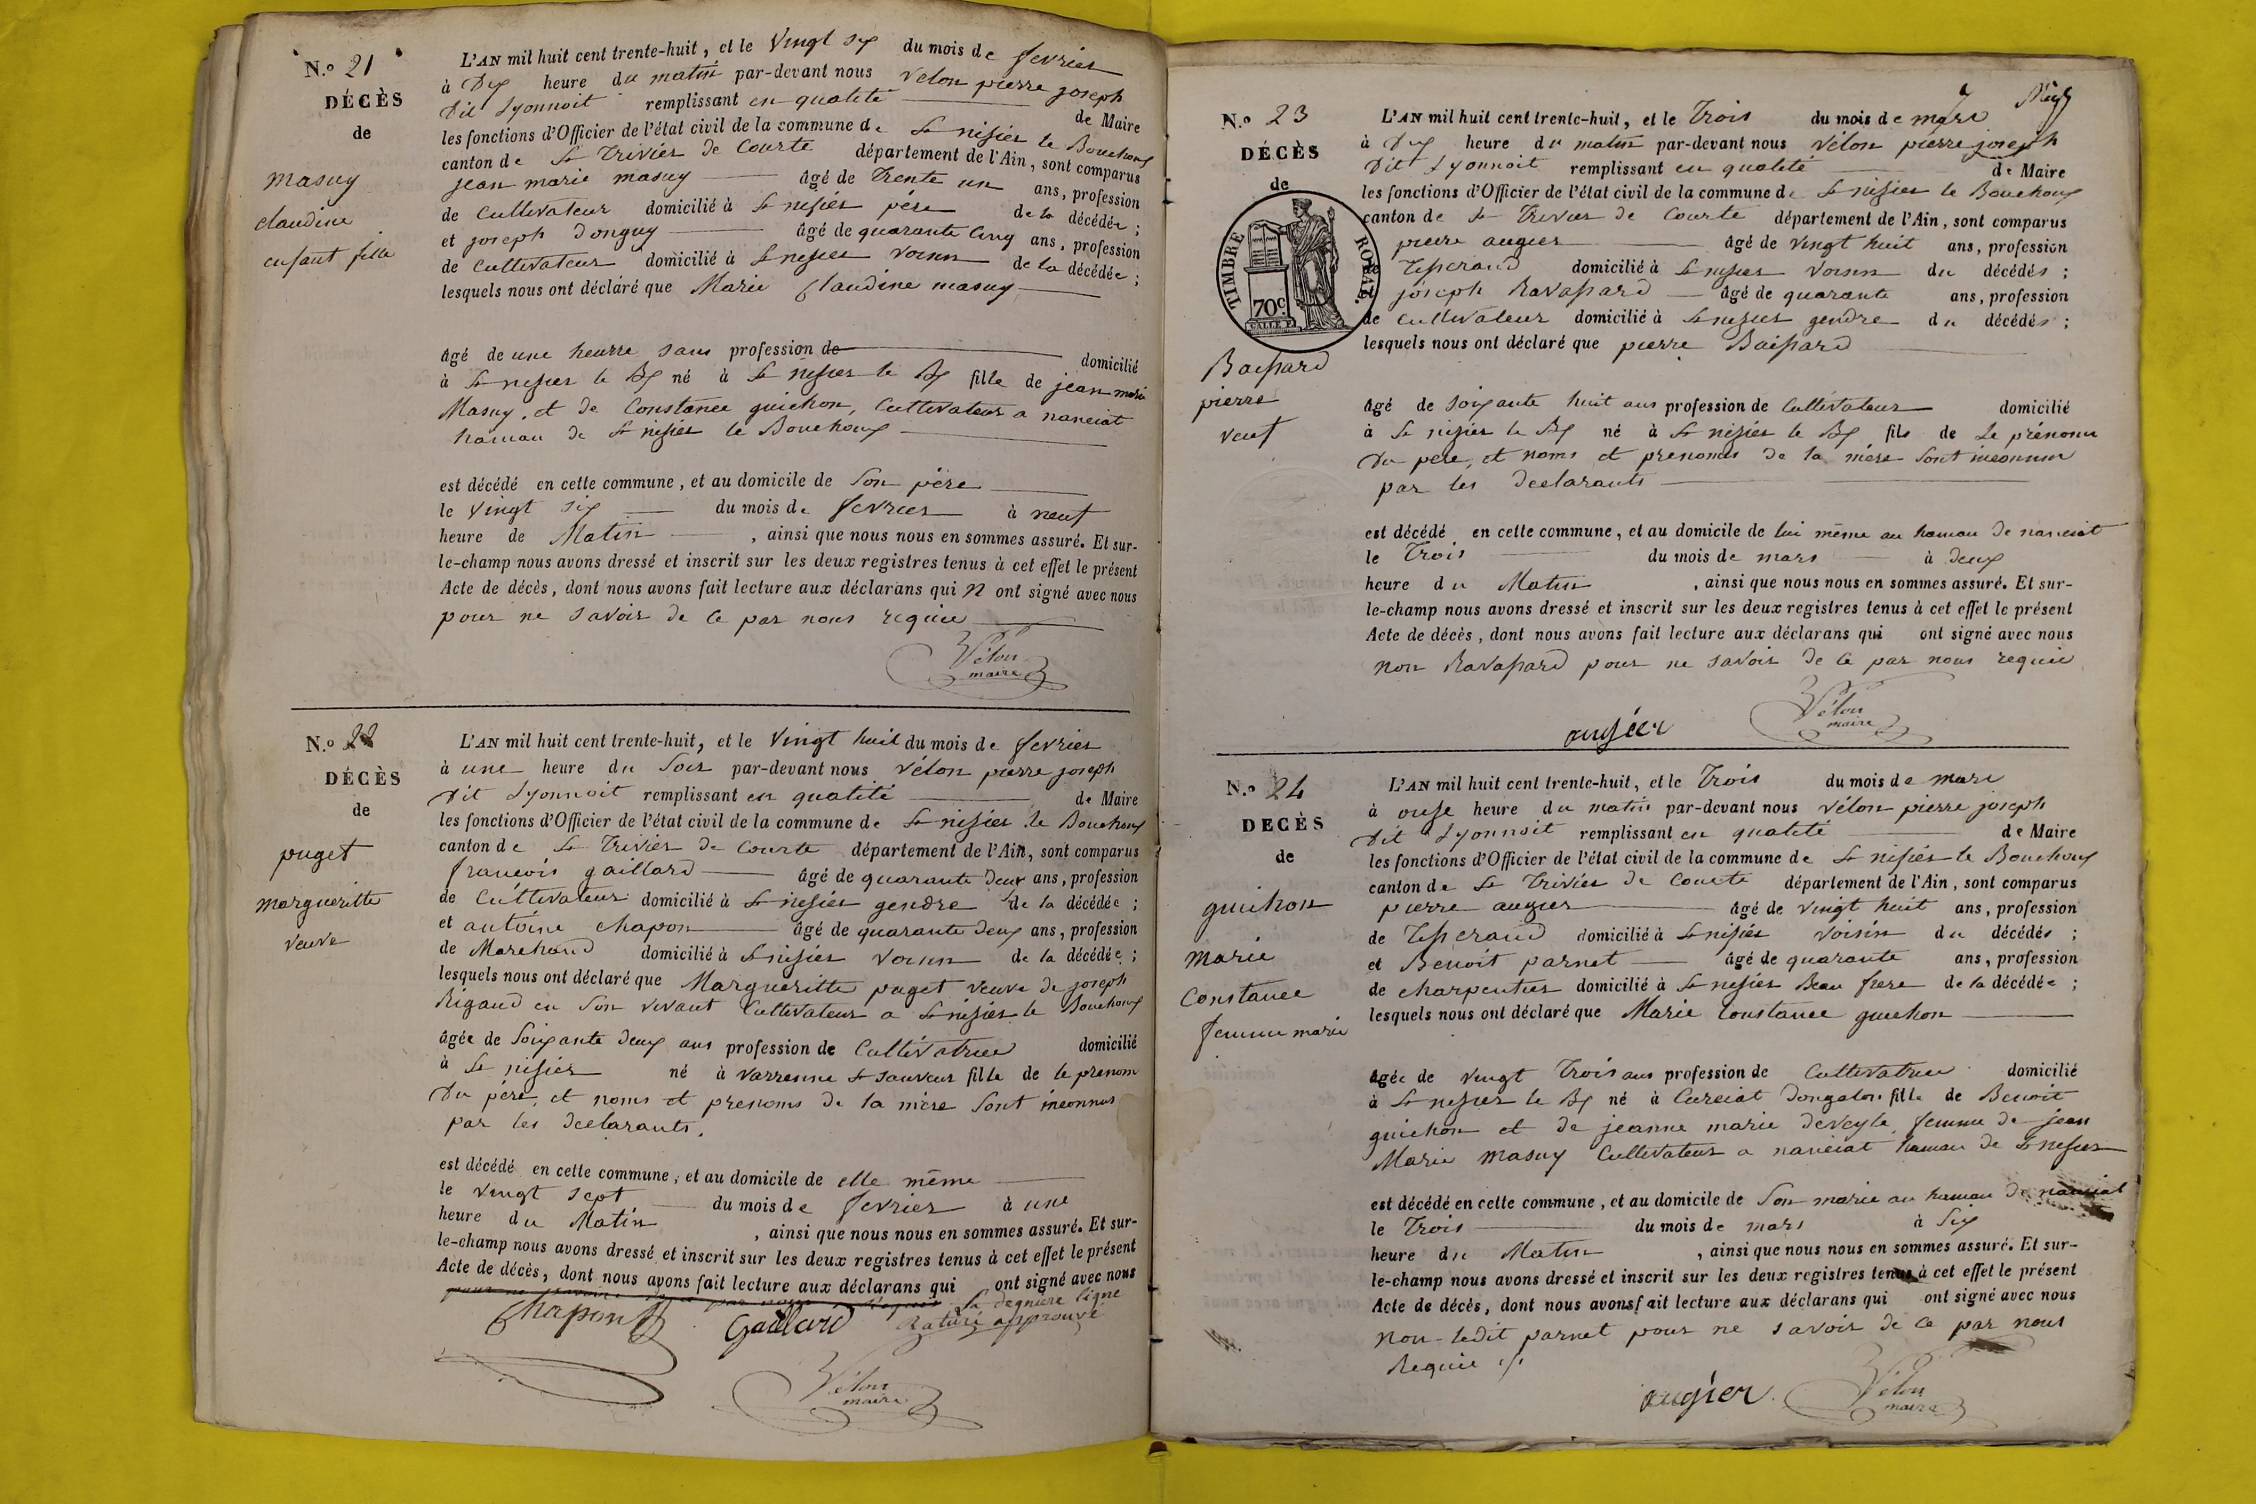 N.o 21
DÉCÈS
de
masuy
claudine
enfant fille
L'AN mil huit cent trente-huit, et le vingt six du mois de fevrier
à Dix heure du matin par-devant nous vélon pierre joseph
Dit Lyonnoit remplissant en qualité de Maire
les fonctions d'Officier de l'état civil de la commune de St nisier le Bouchoux
canton de St Trivier de Courte département de l'Ain, sont comparus
jean marie masuy âgé de trente un ans, profession
de Cultivateur domicilié à St nisier père de la décédée ;
et joseph Donguy âgé de quarante Cinq ans, profession
de Cultivateur domicilié à St nisier voisin de la décédée ;
lesquels nous ont déclaré que Marie Claudine masuy
âgé de une heurre sans profession de domicilié
à St nisier le Bx né à St nisier le Bx fille de jean marie
Masuy, et de Constance guichon, Cultivateur a nanciat
hamau de St nisier le Bouchoux
est décédé en cette commune, et au domicile de Son père
le vingt six du mois de fevrier à neuf
heure de Matin , ainsi que nous nous en sommes assuré. Et sur-
le-champ nous avons dressé et inscrit sur les deux registres tenus à cet effet le présent
Acte de décès, dont nous avons fait lecture aux déclarans qui n ont signé avec nous
pour ne savoir de ce par nous requie
Vélon
maire
N.o 22
DÉCÈS
de
puget
margueritte
veuve
L'AN mil huit cent trente-huit, et le vingt huit du mois de fevrier
à une heure du Soir par-devant nous vélon pierre joseph
Dit Lyonnoit remplissant en qualité de Maire
les fonctions d'Officier de l'état civil de la commune de St nisier le Bouchoux
canton de St Trivier de Courte département de l'Ain, sont comparus
françois gaillard âgé de quarante deux ans, profession
de Cultivateur domicilié à St nisier gendre de la décédée ;
et antoine chapon âgé de quarante deux ans, profession
de Marchand domicilié à St nisier voisin de la décédée ;
lesquels nous ont déclaré que Margueritte puget veuve de joseph
Rigaud en Son vivant Cultivateur a St nisier le Bouchoux
âgée de Soixante deux ans profession de Cultivatrice domicilié
à St nisier né à varrenne St sauveur fille de le prenom
Du père, et noms et prenoms de la mère Sont inconnus
par les declarants.
est décédé en cette commune, et au domicile de elle même
le vingt sept du mois de fevrier à une
heure du Matin , ainsi que nous nous en sommes assuré. Et sur-
le-champ nous avons dressé et inscrit sur les deux registres tenus à cet effet le présent
Acte de décès, dont nous avons fait lecture aux déclarans qui ont signé avec nous
La dernière ligne
Chapon Gaillard Raturé approuvé
Vélon
maire
N.o 23
DÉCÈS
de
TIMBRE ROYAL.
70c
Baissard
pierre
veuf
L'AN mil huit cent trente-huit, et le Trois du mois de mars
à Dix heure du matin par-devant nous vélon pierre joseph
Dit Lyonnoit remplissant en qualité de Maire
les fonctions d'Officier de l'état civil de la commune de St nisier le Bouchoux
canton de St Trivier de Courte département de l'Ain, sont comparus
pierre augier âgé de vingt huit ans, profession
Tisserand domicilié à St nisier voisin du décédés ;
joseph Ravassard âgé de quarante ans, profession
de Cultivateur domicilié à St nisier gendre du décédés ;
lesquels nous ont déclaré que pierre Baissard
âgé de soixante huit ans profession de Cultivateur domicilié
à St nisier le Bx né à St nisier le Bx fils de Le prénom
Du père, et noms et prenoms de la mère Sont inconnus
par les declarants
est décédé en cette commune, et au domicile de lui même au hamau de nanciat
le Trois du mois de mars à deux
heure du Matin , ainsi que nous nous en sommes assuré. Et sur-
le-champ nous avons dressé et inscrit sur les deux registres tenus à cet effet le présent
Acte de décès, dont nous avons fait lecture aux déclarans qui ont signé avec nous
non Ravassard pour ne savoir de ce par nous requie
Vélon
maire
augier
N.o 24
DÉCÈS
de
guichon
marie
Constance
femme marié
L'AN mil huit cent trente-huit, et le Trois du mois de mars
à onse heure du matin par-devant nous vélon pierre joseph
Dit Lyonnoit remplissant en qualité de Maire
les fonctions d'Officier de l'état civil de la commune de St nisier le Bouchoux
canton de St Trivier de Courte département de l'Ain, sont comparus
pierre augier âgé de vingt huit ans, profession
de Tisserand domicilié à St nisier voisin du décédés ;
et Benoit parnet âgé de quarante ans, profession
de charpentier domicilié à St nisier Beau frere de la décédée ;
lesquels nous ont déclaré que Marie Constance guichon
âgée de vingt Trois ans profession de Cultivatrice domicilié
à St nisier le Bx né à Curciat Dongalon fille de Benoit
guichon et de jeanne marie deveyle, femme de jean
Marie masuy Cultivateur a nanciat hamau de St nisier
est décédé en cette commune, et au domicile de Son marie au hamau de nanciat
le Trois du mois de mars à Six
heure du Matin , ainsi que nous nous en sommes assuré. Et sur-
le-champ nous avons dressé et inscrit sur les deux registres tenus à cet effet le présent
Acte de décès, dont nous avons fait lecture aux déclarans qui ont signé avec nous
non ledit parnet pour ne savoir de ce par nous
Requie
augier. Vélon
maire